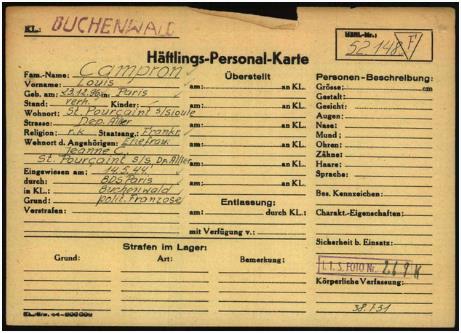 KL.: BUCHENWALD
Häftl.-Nr.: 52148 F
Häftlings-Personal-Karte
Fam.-Name: Campron
Vorname: Louis
Geb. am: 23.12.96 in Paris
Stand: verh. Kinder:
Wohnort: St. Pourçaint s/Sioule
Strasse: Dep. Allier
Religion: r.k. Staatsang.: Frankr.
Wohnort d. Angehörigen: Ehefrau
Jeanne C.
St. Pourçaint s/s Dp. Allier
Eingewiesen am: 14.5.44
durch: BDS Paris
in KL.: Buchenwald
Grund: polit. Franzose
Vorstrafen:
Überstellt
am: an KL.
am: an KL.
am: an KL.
am: an KL.
am: an KL.
am: an KL.
Entlassung:
am: durch KL.:
mit Verfügung v.:
Personen-Beschreibung:
Grösse: cm
Gestalt:
Gesicht:
Augen:
Nase:
Mund:
Ohren:
Zähne:
Haare:
Sprache:
Bes. Kennzeichen:
Charakt.-Eigenschaften:
Sicherheit b. Einsatz:
I.T.S. FOTO Nr.
Körperliche Verfassung:
Strafen im Lager:
Grund: Art: Bemerkung: